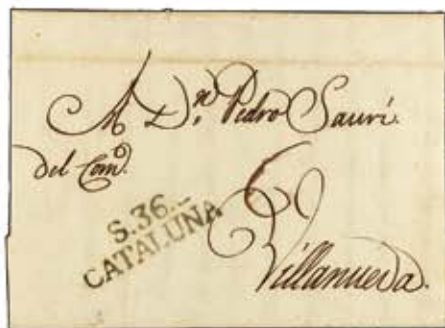 A Dn. Pedro Saurí.
del Com.º
S.36.-
CATALUÑA
6
Villanueva.